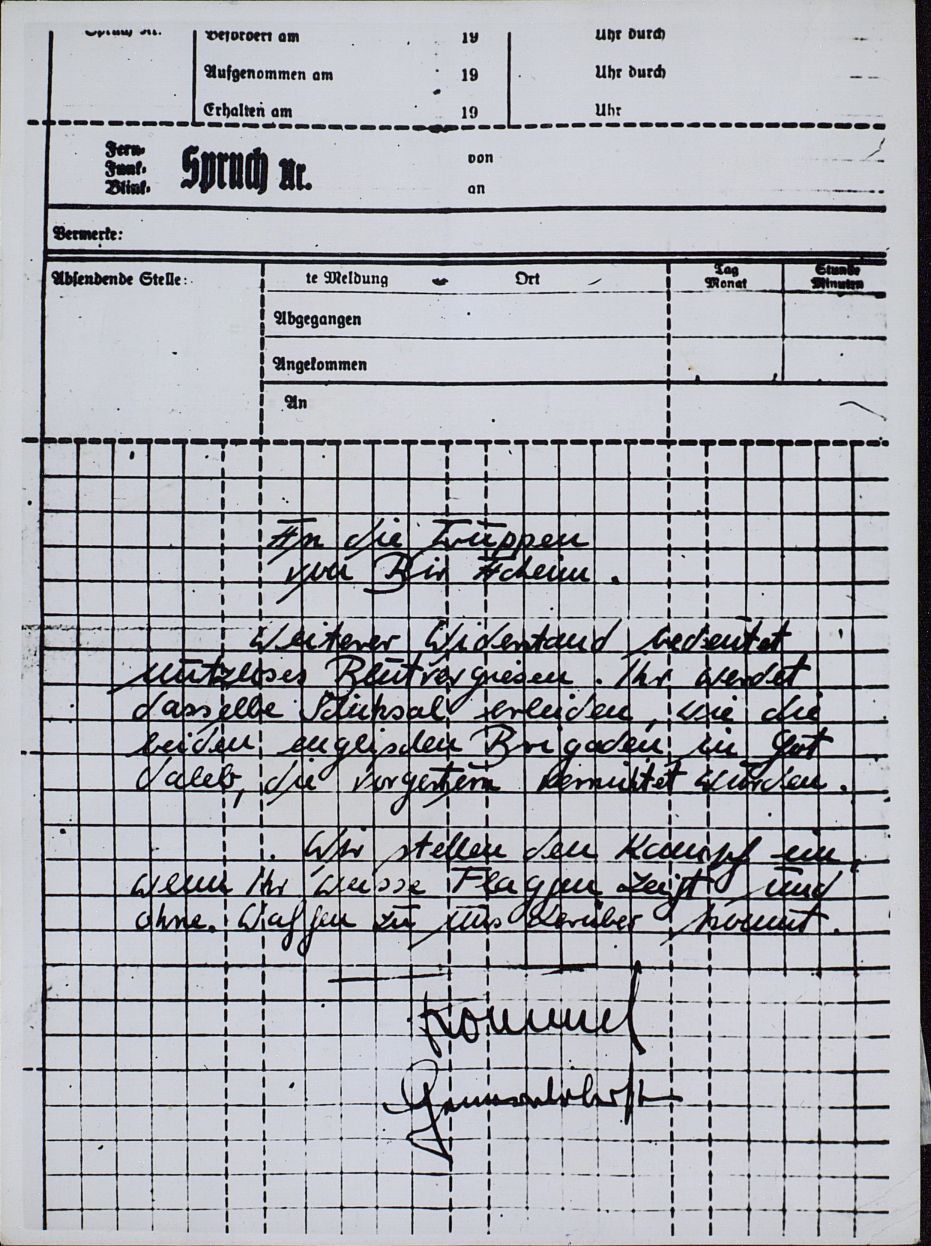 Spruch Nr.
Befördert am 19 Uhr durch
Aufgenommen am 19 Uhr durch
Erhalten am 19 Uhr
Fern-
Funk-
Blink-
Spruch Nr.
von
an
Vermerke:
Absendende Stelle:
te Meldung
Ort
Tag
Monat
Stunde
Minuten
Abgegangen
Angekommen
An
An die Truppen
von Bir Acheim.
Weiterer Widerstand bedeutet
nutzloses Blutvergiesen. Ihr werdet
dasselbe Schiksal erleiden, wie die
beiden englischen Brigaden in Got
Ualeb, die vorgestern vernichtet wurden.
Wir stellen den Kampf ein,
wenn Ihr weisse Flaggen zeigt und
ohne Waffen zu uns herüber kommt.
Rommel
Generaloberst